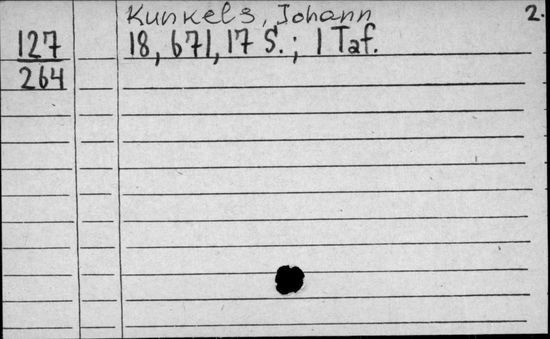 Kunkels, Johann 2.
127 18, 671, 17 S.; 1 Taf.
264